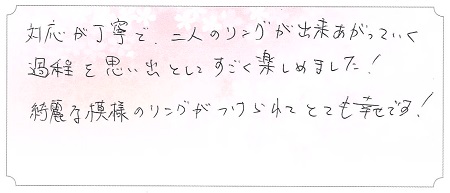 対応が丁寧で、二人のリングが出来あがっていく
過程を思い出としてすごく楽しめました!
綺麗な模様のリングがつけられてとても幸せです!